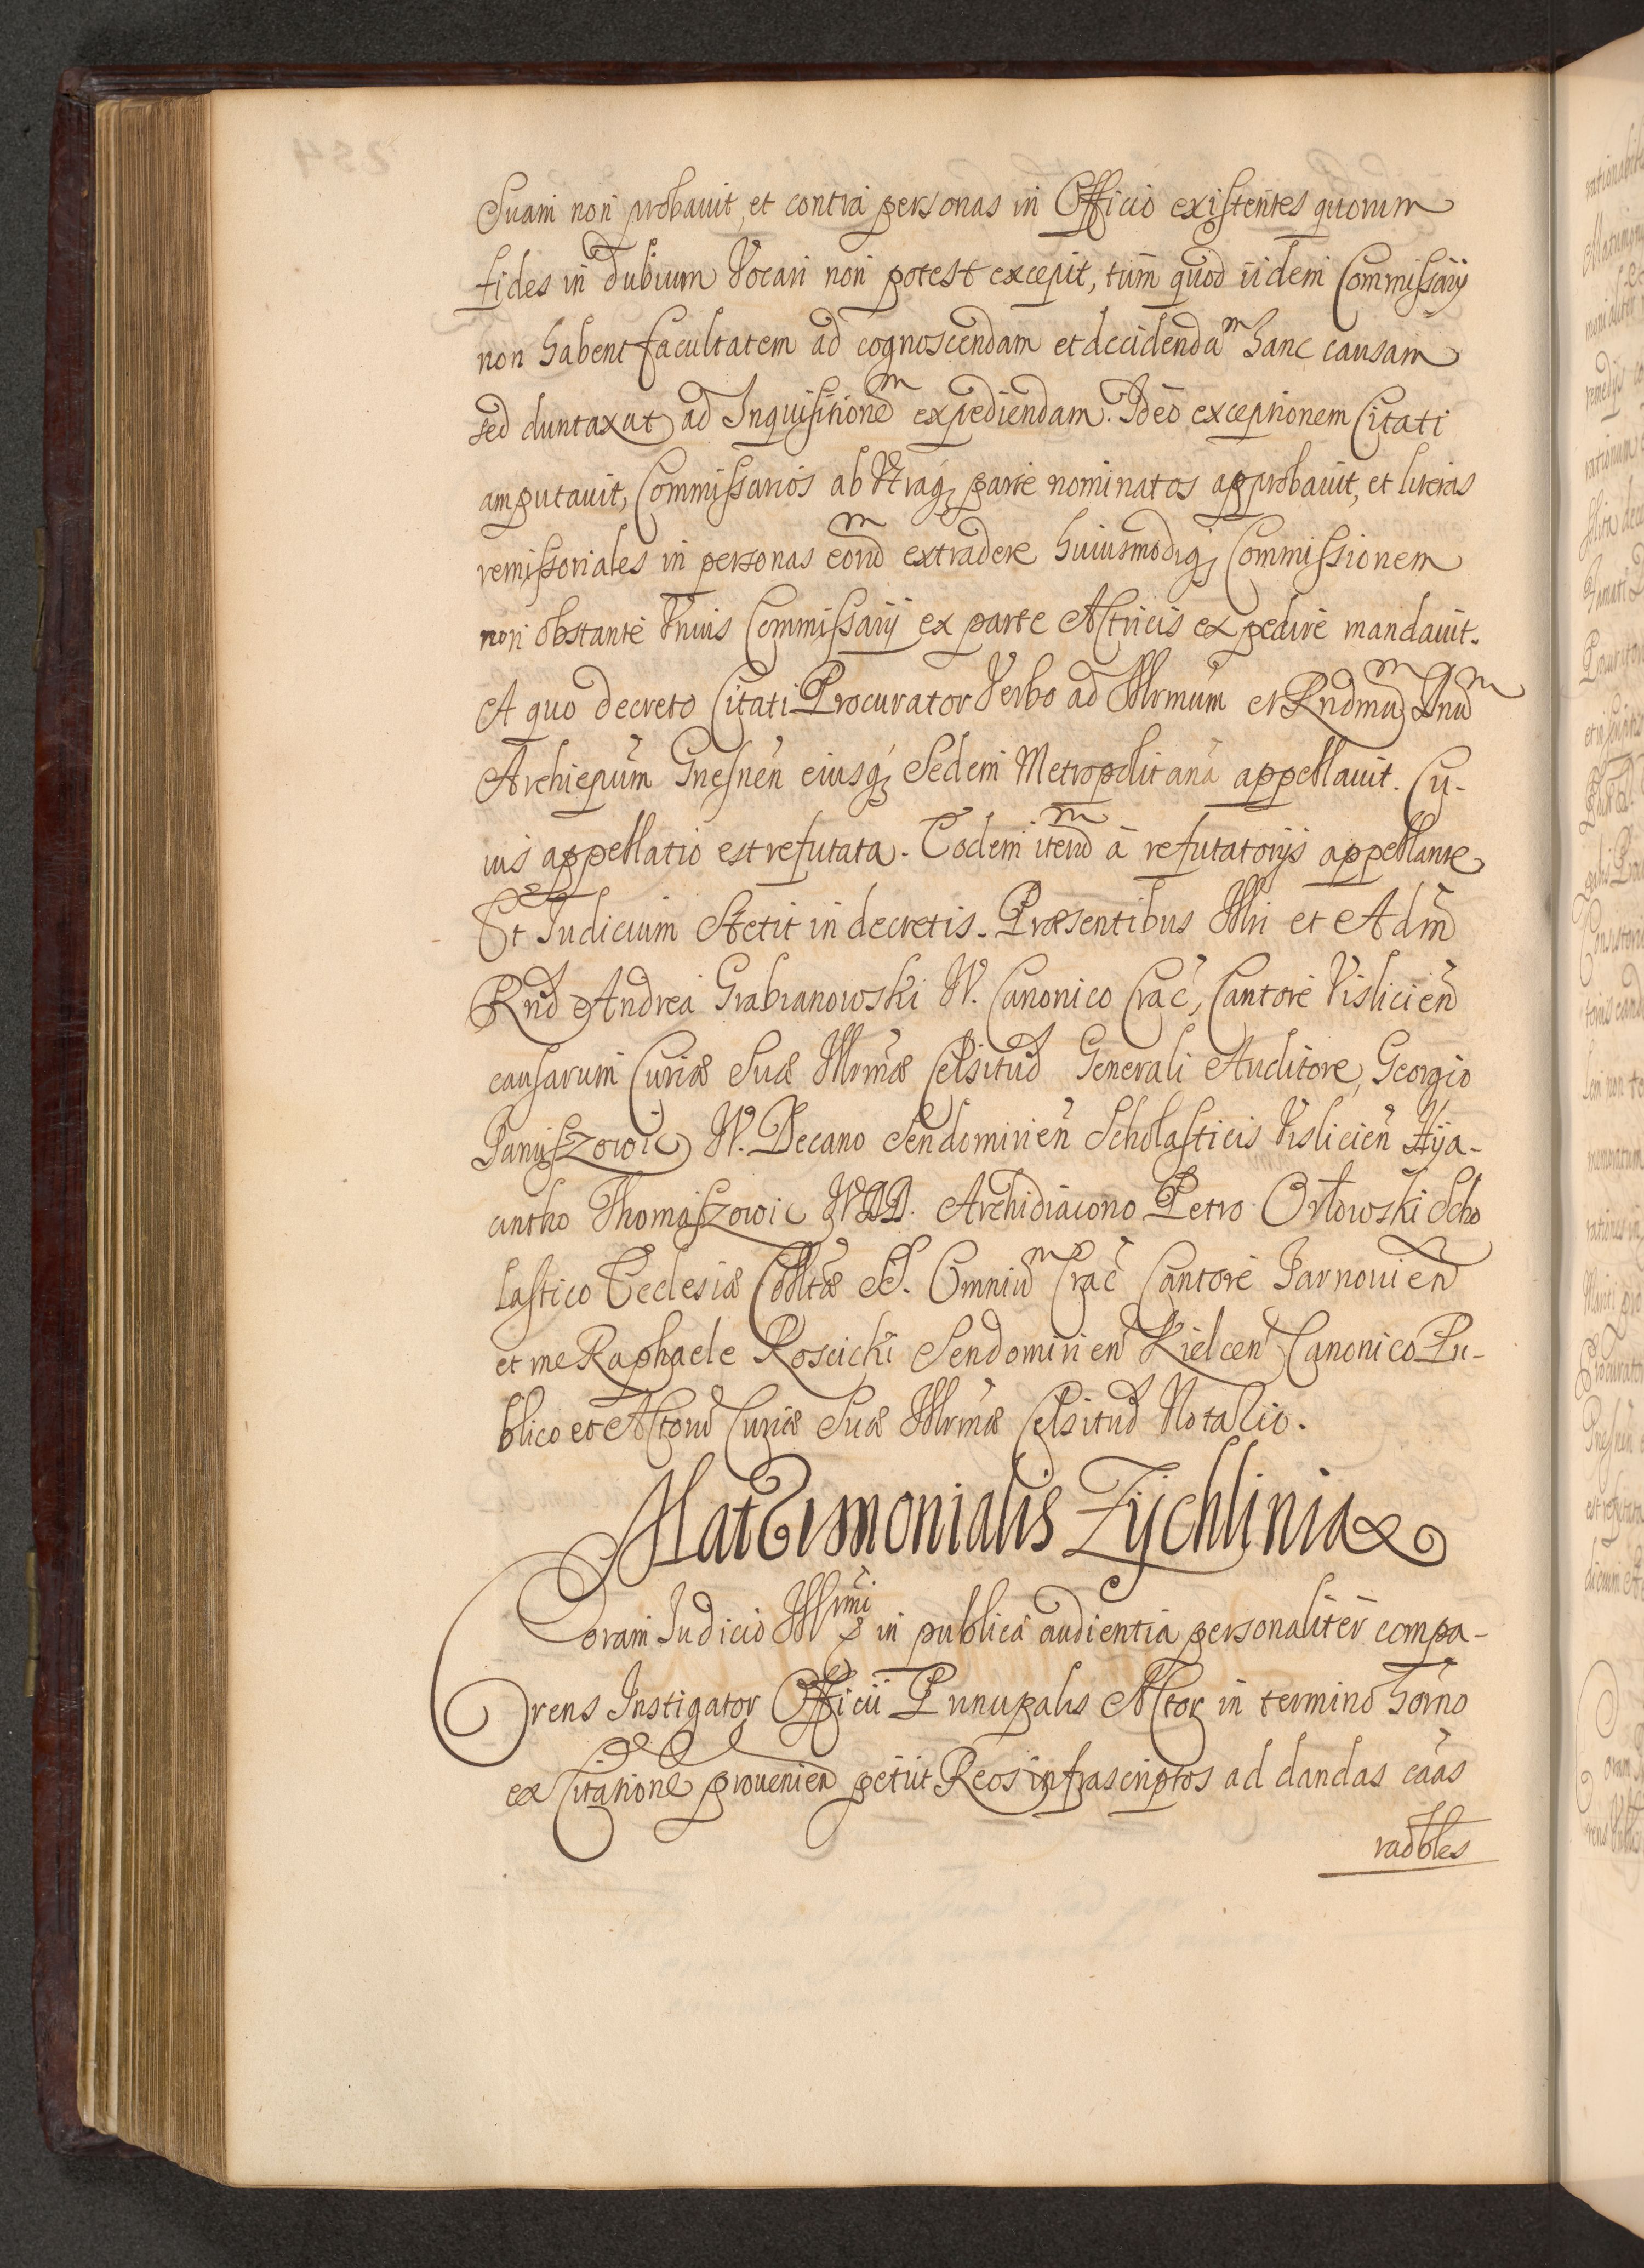 Suam non probauit, et contra personas in Officio existentes quorum
fides in dubium Vocari non potest excepit, tum quod iidem Commissarij
non habent facultatem ad cognoscendam et decidendam hanc causam
sed duntaxat ad Inquisitionem expediendam. Ideo exceptionem Citati
amputauit, Commissarios ab Vtraq; parte nominatos approbauit, et literas
remissoriales in personas eorum extradere huiusmodiq; Commissionem
non obstante Vnius Commissarij ex parte Actricis expedire mandauit.
A quo decreto Citati Procurator Verbo ad Illrmum et Rndmum Dnum
Archiepum Gnesnen eiusq; Sedem Metropolitana appellauit. Cu-
ius appellatio est refutata. Eodem iterum à refutatorijs appellante
Et Iudicium Stetit in decretis. Præsentibus Illri et Adm
Rnd Andrea Grabianowski W. Canonico Crac, Cantore Vislicien
causarum Curiæ Suæ Illrmæ Celsitud Generali Auditore, Georgio
W. Decano Sendomirien Scholasticis Vislicien Hija-
cintho Thomaszowic Archidiacono Petro Orłowski Scho
lastico Ecclesiæ Colltæ SS. Omnium Crac Cantore Tarnouien
et me Raphaele Roscicki Sendomirien Kielcen Canonico Pu-
blico et Actorum Curiæ Suæ Illrmæ Celsitud Notario.
Matrimonialis Zijchliniæ
Coram Iudicio Illrmi in publica audientia personaliter compa-
rens Instigator Officii Principalis Actor in termino horno
ex Citatione prouenien petiit Reos infrascriptos ad dandas caas
raōbles
254